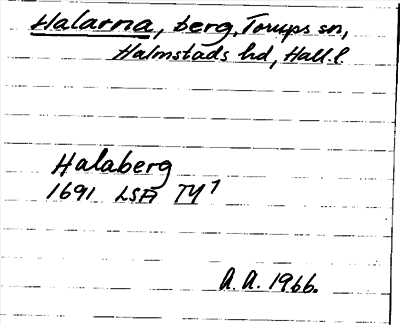 Halarna, berg, Torups sn,
Halmstads hd, Hall.l.
Halaberg
1691 LSA TY 1
A.A. 1966.